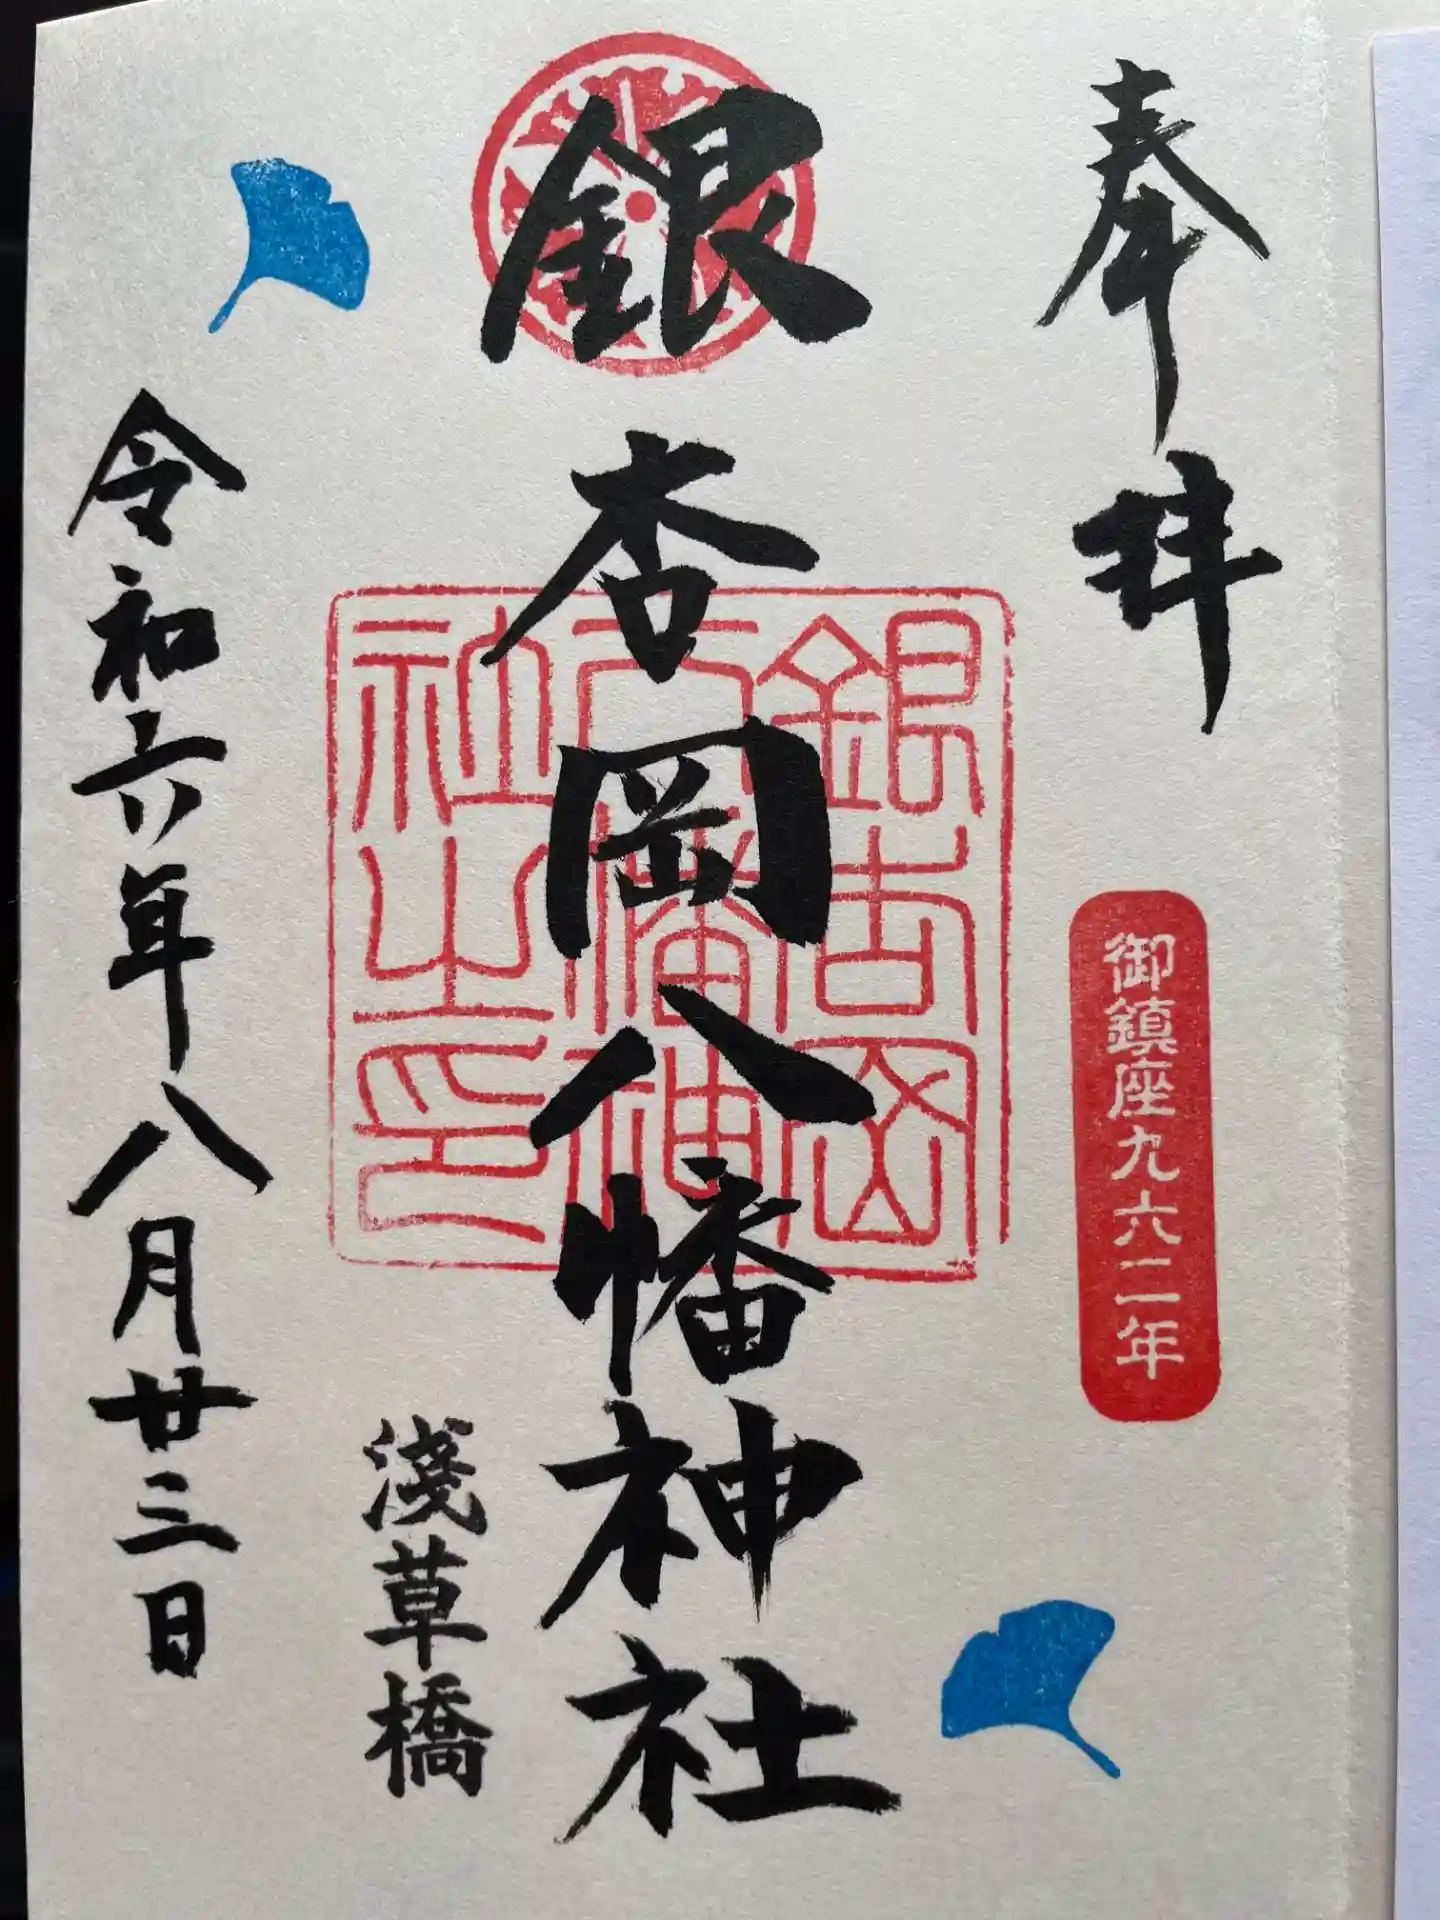 奉拝
御鎮座九六二年
銀杏岡八幡神社
銀杏岡
八幡神
社之印
淺草橋
令和六年八月廿三日